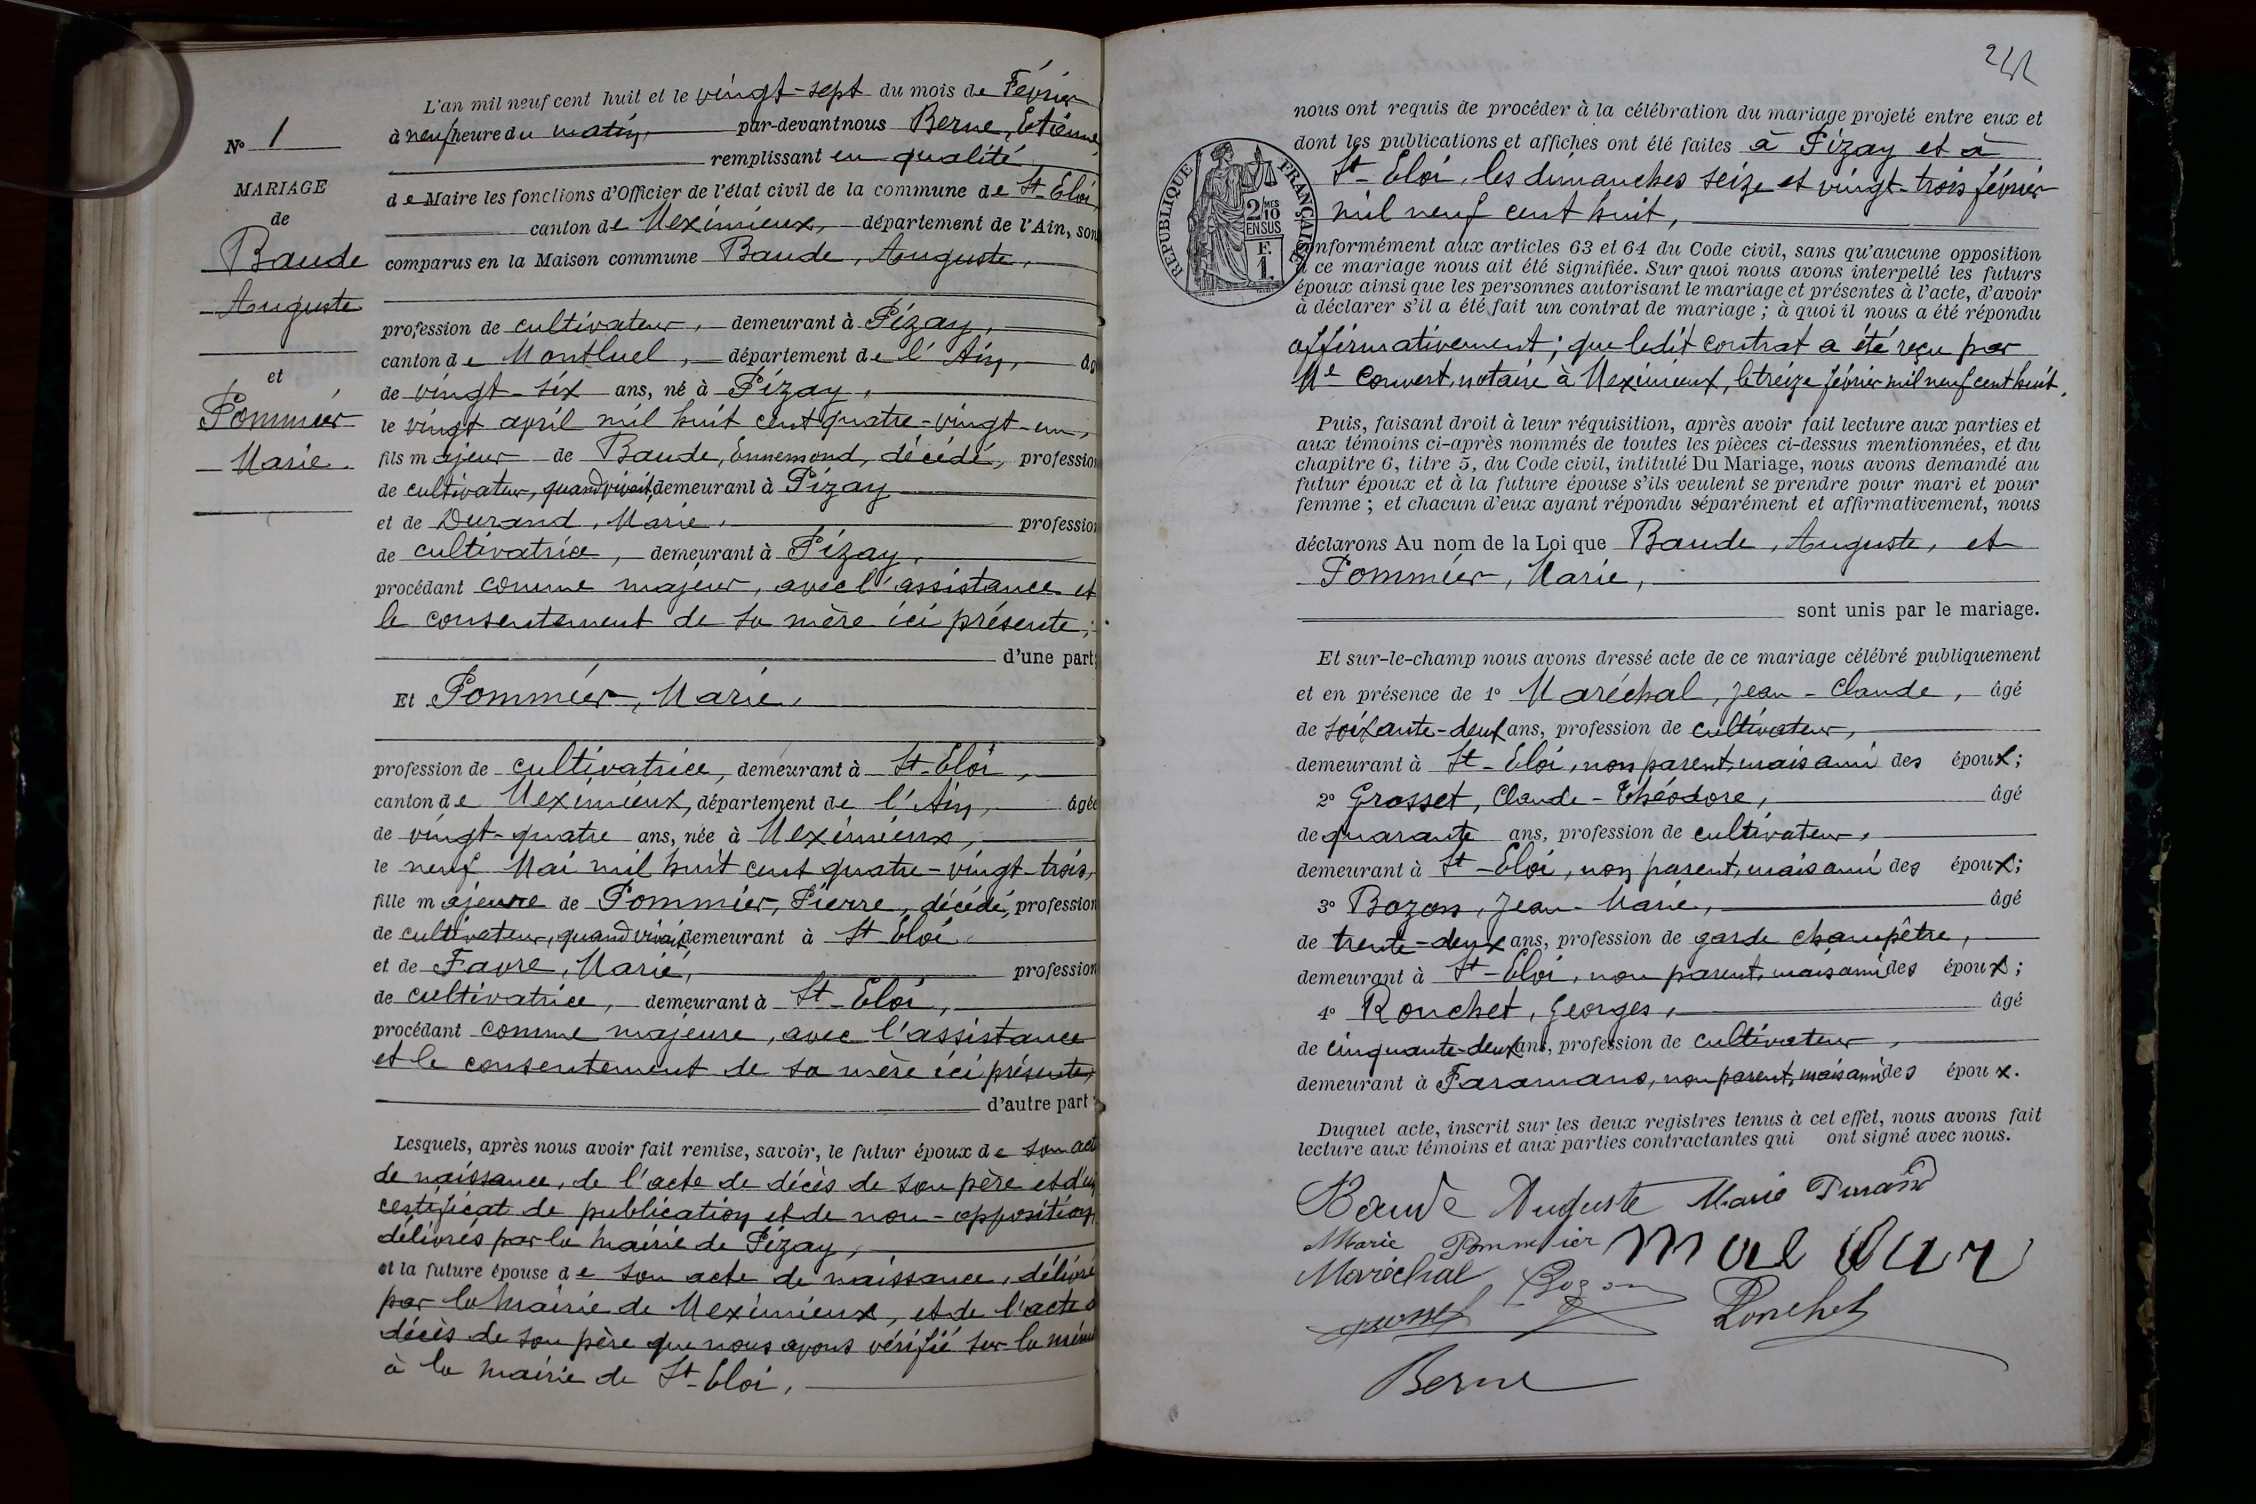 L'an mil neuf cent huit et le vingt-sept du mois de Février
à neuf heure du matin, par-devant nous Berne, Etienne,
remplissant en qualité
de Maire les fonctions d'Officier de l'état civil de la commune de St-Eloi,
canton de Meximieux, département de l'Ain, son
comparus en la Maison commune Baude, Auguste,
profession de cultivateur, demeurant à Pizay,
canton de Montluel, département de l'Ain, âg
de vingt-six ans, né à Pizay,
le vingt april mil huit cent quatre-vingt-un,
fils majeur de Baude, Ennemond, décédé, profession
de cultivateur, quand vivait, demeurant à Pizay
et de Durand, Marie, profession
de cultivatrice, demeurant à Pizay,
procédant comme majeur, avec l'assistance et
le consentement de sa mère ici présente;
d'une part;
Et Pommier, Marie,
profession de cultivatrice, demeurant à St-Eloi,
canton de Meximieux, département de l'Ain, âgée
de vingt-quatre ans, née à Meximieux,
le neuf Mai mil huit cent quatre-vingt-trois,
fille majeure de Pommier, Pierre, décédé, profession
de cultivateur, quand vivait, demeurant à St Eloi
et de Favre, Marie, profession
de cultivatrice, demeurant à St-Eloi,
procédant comme majeure, avec l'assistance
et le consentement de sa mère ici présente,
d'autre part;
Lesquels, après nous avoir fait remise, savoir, le futur époux de son acte
de naissance, de l'acte de décès de son père et d'un
certificat de publication et de non-opposition
délivrés par la mairie de Pizay,
et la future épouse de son acte de naissance, délivré
par la Mairie de Meximieux, et de l'acte d
décès de son père que nous avons vérifié sur la minu
à la mairie de St-Eloi,
No 1
MARIAGE
de
Baude
Auguste
et
Pommier
Marie.
241
nous ont requis de procéder à la célébration du mariage projeté entre eux et
dont les publications et affiches ont été faites à Pizay et à
St-Eloi, les dimanches seize et vingt-trois février
mil neuf cent huit,
RÉPUBLIQUE FRANÇAISE
2/10 MES
EN SUS
F.
1.
onformément aux articles 63 et 64 du Code civil, sans qu'aucune opposition
à ce mariage nous ait été signifiée. Sur quoi nous avons interpellé les futurs
époux ainsi que les personnes autorisant le mariage et présentes à l'acte, d'avoir
à déclarer s'il a été fait un contrat de mariage; à quoi il nous a été répondu
affirmativement; que ledit contrat a été reçu par
Me Convert, notaire à Meximieux, le treize février mil neuf cent huit.
Puis, faisant droit à leur réquisition, après avoir fait lecture aux parties et
aux témoins ci-après nommés de toutes les pièces ci-dessus mentionnées, et du
chapitre 6, titre 5, du Code civil, intitulé Du Mariage, nous avons demandé au
futur époux et à la future épouse s'ils veulent se prendre pour mari et pour
femme; et chacun d'eux ayant répondu séparément et affirmativement, nous
déclarons Au nom de la Loi que Baude, Auguste, et
Pommier, Marie,
sont unis par le mariage.
Et sur-le-champ nous avons dressé acte de ce mariage célébré publiquement
et en présence de 1° Maréchal, Jean-Claude, âgé
de soixante-deux ans, profession de cultivateur,
demeurant à St-Eloi, non parent, mais ami des époux;
2° Grosset, Claude-Théodore, âgé
de quarante ans, profession de cultivateur,
demeurant à St-Eloi, non parent, mais ami des époux;
3° Bozon, Jean-Marie, âgé
de trente-deux ans, profession de garde champêtre,
demeurant à St-Eloi, non parent, mais ami des époux;
4° Ronchet, Georges, âgé
de cinquante-deux ans, profession de cultivateur,
demeurant à Faramans, non parent, mais ami des époux.
Duquel acte, inscrit sur les deux registres tenus à cet effet, nous avons fait
lecture aux témoins et aux parties contractantes qui ont signé avec nous.
Baude Auguste Marie Durand
Marie Pommier
Maréchal Bozon
Ronchet
Berne